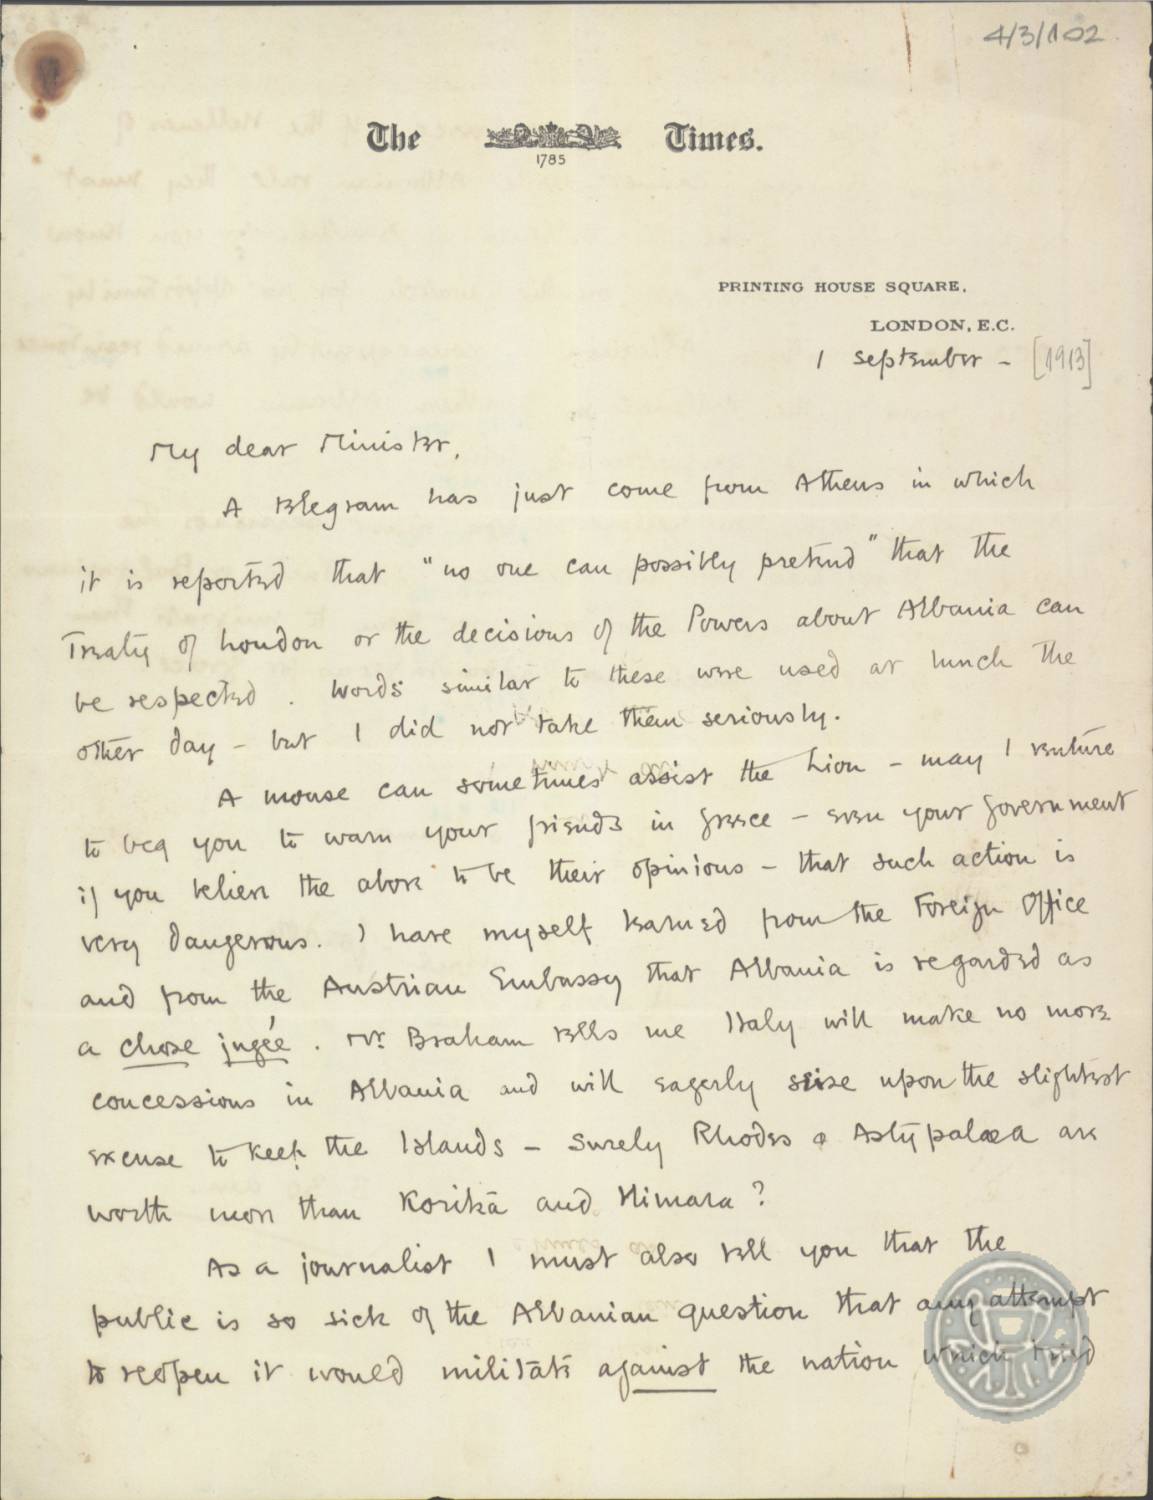 4/3/102
The Times.
1785
PRINTING HOUSE SQUARE,
LONDON, E.C.
1 September - [1913]
My dear Minister,
A telegram has just come from Athens in which
it is reported that "no one can possibly pretend" that the
Treaty of London or the decisions of the Powers about Albania can
be respected. Words similar to these were used at lunch the
other day - but I did not take them seriously.
A mouse can sometimes assist the Lion - may I venture
to beg you to warn your friends in Greece - even your Government
if you believe the above to be their opinions - that such action is
very dangerous. I have myself learned from the Foreign Office
and from the Austrian Embassy that Albania is regarded as
a chose jugée. Mr. Braham tells me Italy will make no more
concessions in Albania and will eagerly seize upon the slightest
excuse to keep the Islands - Surely Rhodes & Astypalaea are
worth more than Koritsa and Himara?
As a journalist I must also tell you that the
public is so sick of the Albanian question that any attempt
to reopen it would militate against the nation which tried